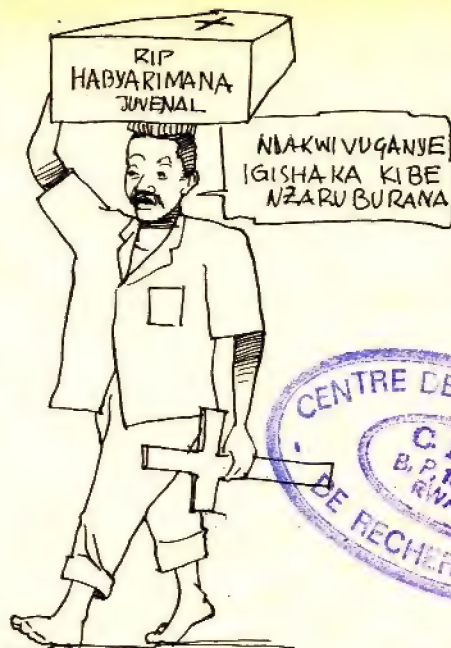 RIP
HABYARIMANA
JUVENAL
NDAKWIVUGANYE
IGISHAKA KIBE
NZARUBURANA
CENTRE DE
C.
B.P. 1
RWA
DE RECHER